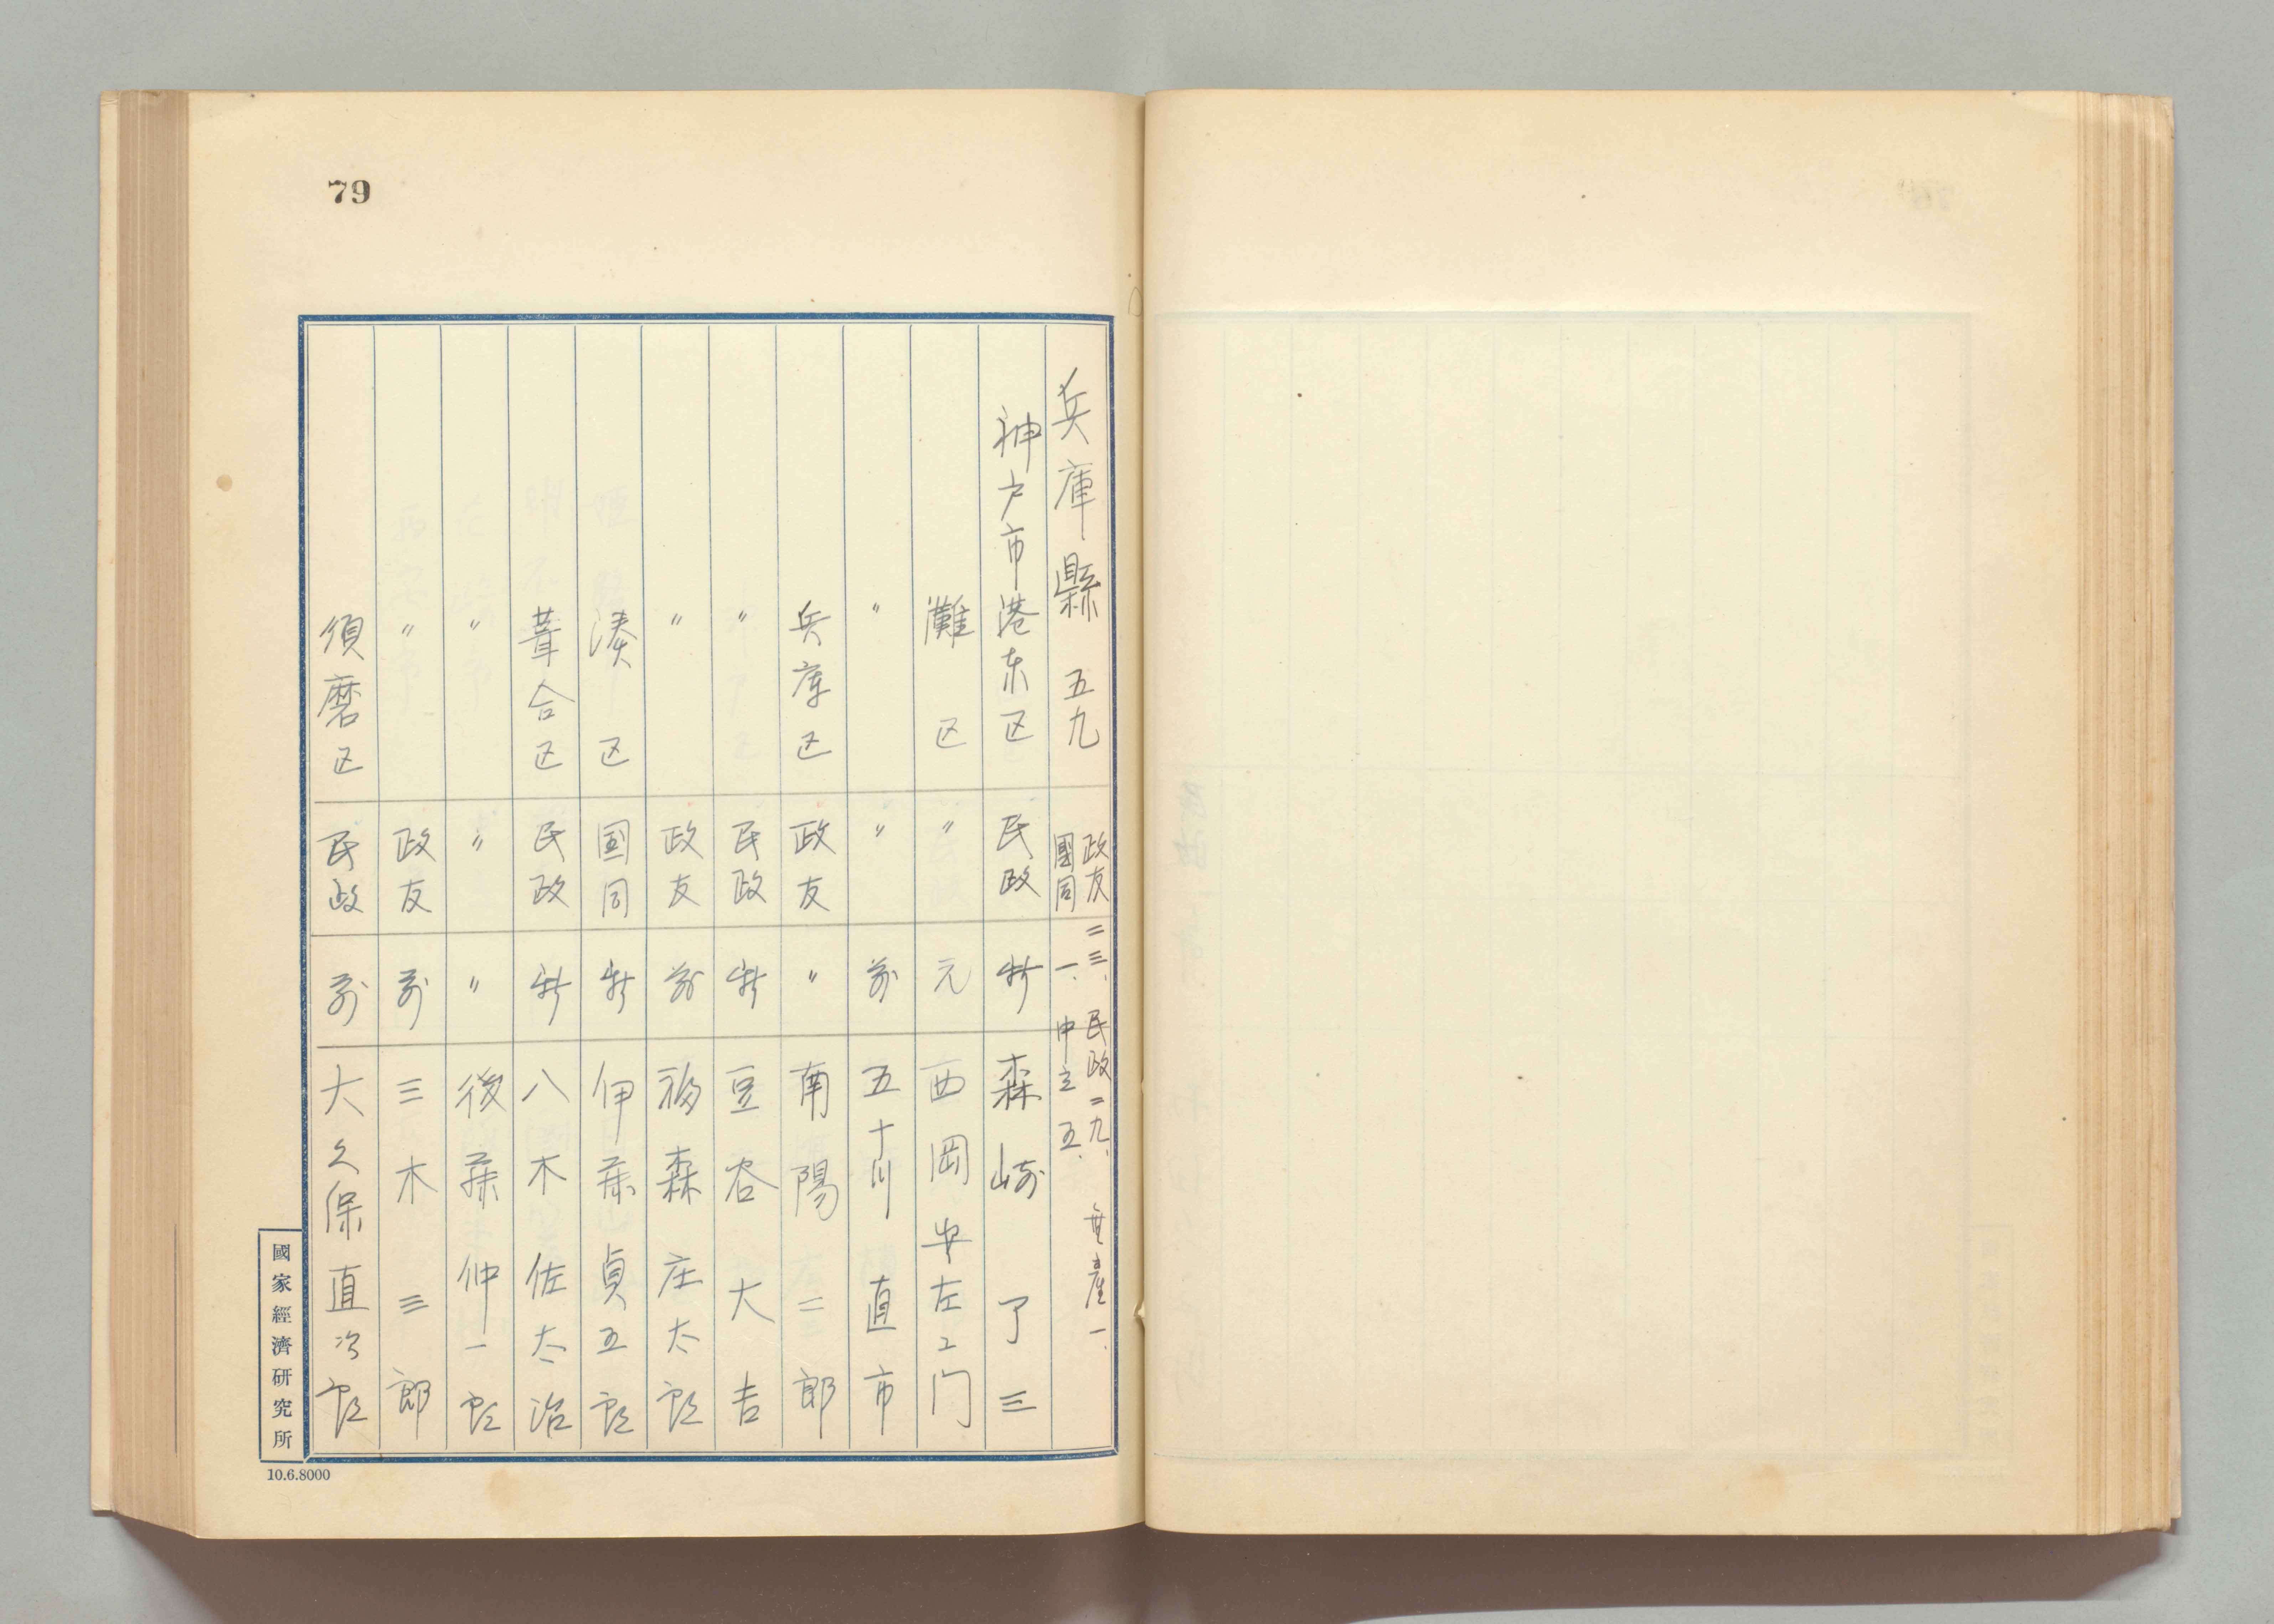 79
兵庫縣 五九 政友 二三、 民政 二九、 無産 一、
國同 一、 中立 五、
神戸市港东区 民政 新 森崎了三
灘区 〃 元 西岡安左エ门
〃 〃 前 五十川直市
兵庫区 政友 〃 南陽二郎
〃 民政 新 豆谷大吉
〃 政友 前 福森庄太郎
湊区 国同 新 伊藤貞五郎
葺合区 民政 新 八木佐太治
〃 〃 〃 後藤仲一郎
〃 政友 前 三木三郎
須磨区 民政 前 大久保直次郎
國家經濟研究所
10.6.8000